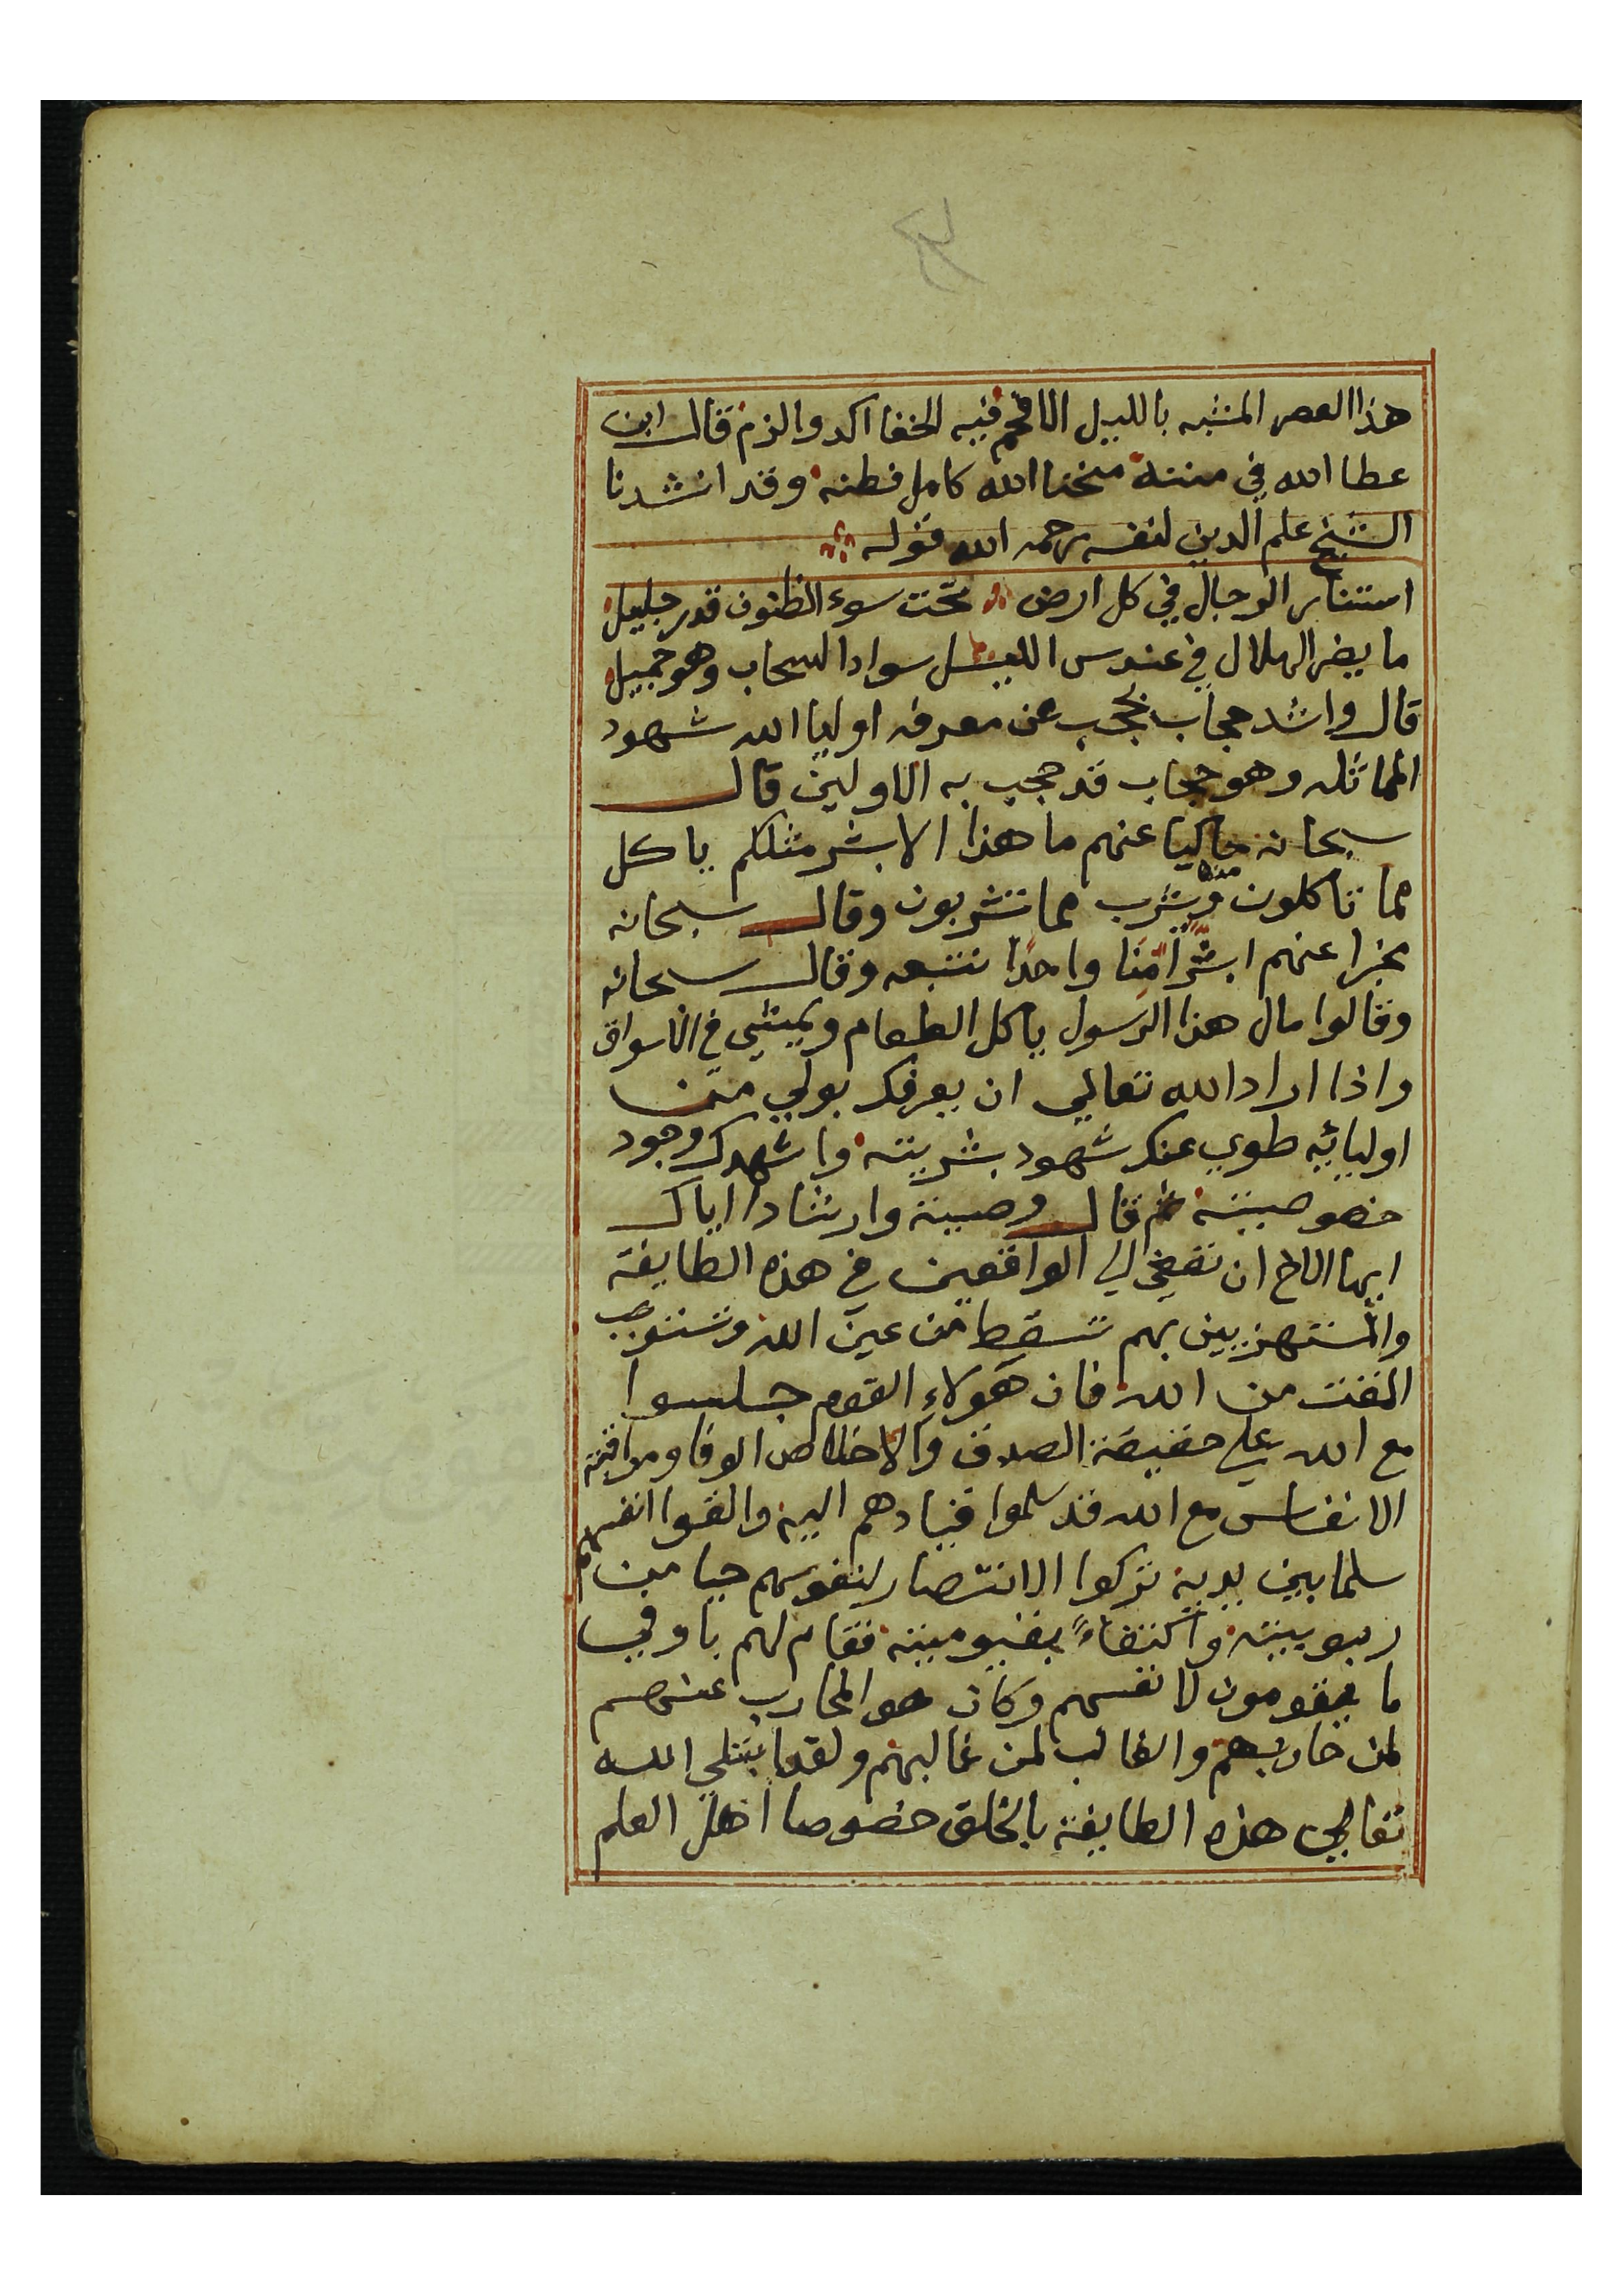 هذا العصر المشبه بالليل الافحم فيه الخفا اكد والزم قال ابن
عطا الله في مننه منحنا الله كامل فطنه وقد انشدنا
الشيخ علم الدين لنفسه رحمه الله قوله
استتار الرجال في كل ارض تحت سوء الظنون قدر جليل
ما يضر الهلال في عندس الليل سواد السحاب وهو جميل
قال واشد حجاب يحجب عن معرفه اوليا الله شهود
المماثله وهو حجاب قد حجب به الاولين قال
سبحانه حاكيا عنهم ما هذا الا بشر مثلكم ياكل
مما تاكلون منه ويشرب مما تشربون وقال سبحانه
مخبرا عنهم ابشرا منا واحدا نتبعه وقال سبحانه
وقالوا مال هذا الرسول ياكل الطعام ويمشي في الاسواق
واذا اراد الله تعالي ان يعرفك بولي من
اوليائيه طوي عنك شهود بشريته واشهدك وجود
خصوصيته ثم قال وصية وارشادا اياك
ايها الاخ ان تصغي الي الواقعين في هذه الطايفة
والمستهزيين بهم تسقط من عين الله وتستوجب
المقت من الله فان هولاء القوم جلسوا
مع الله علي حقيقة الصدق والاخلاص الوفا ومراقبة
الانفاس مع الله قد سلموا قيادهم اليه والقوا انفسهم
سلما بين يديه تركوا الانتصار لنفوسهم حيا من
ربوبيته واكتفاءً بقيوميته فقام لهم باوفي
ما يقومون لانفسهم وكان هو المحارب عنهم
لمن حاربهم والغالب لمن غالبهم ولقد ابتلي الله
تعالي هذه الطايفة بالخلق خصوصا اهل العلم